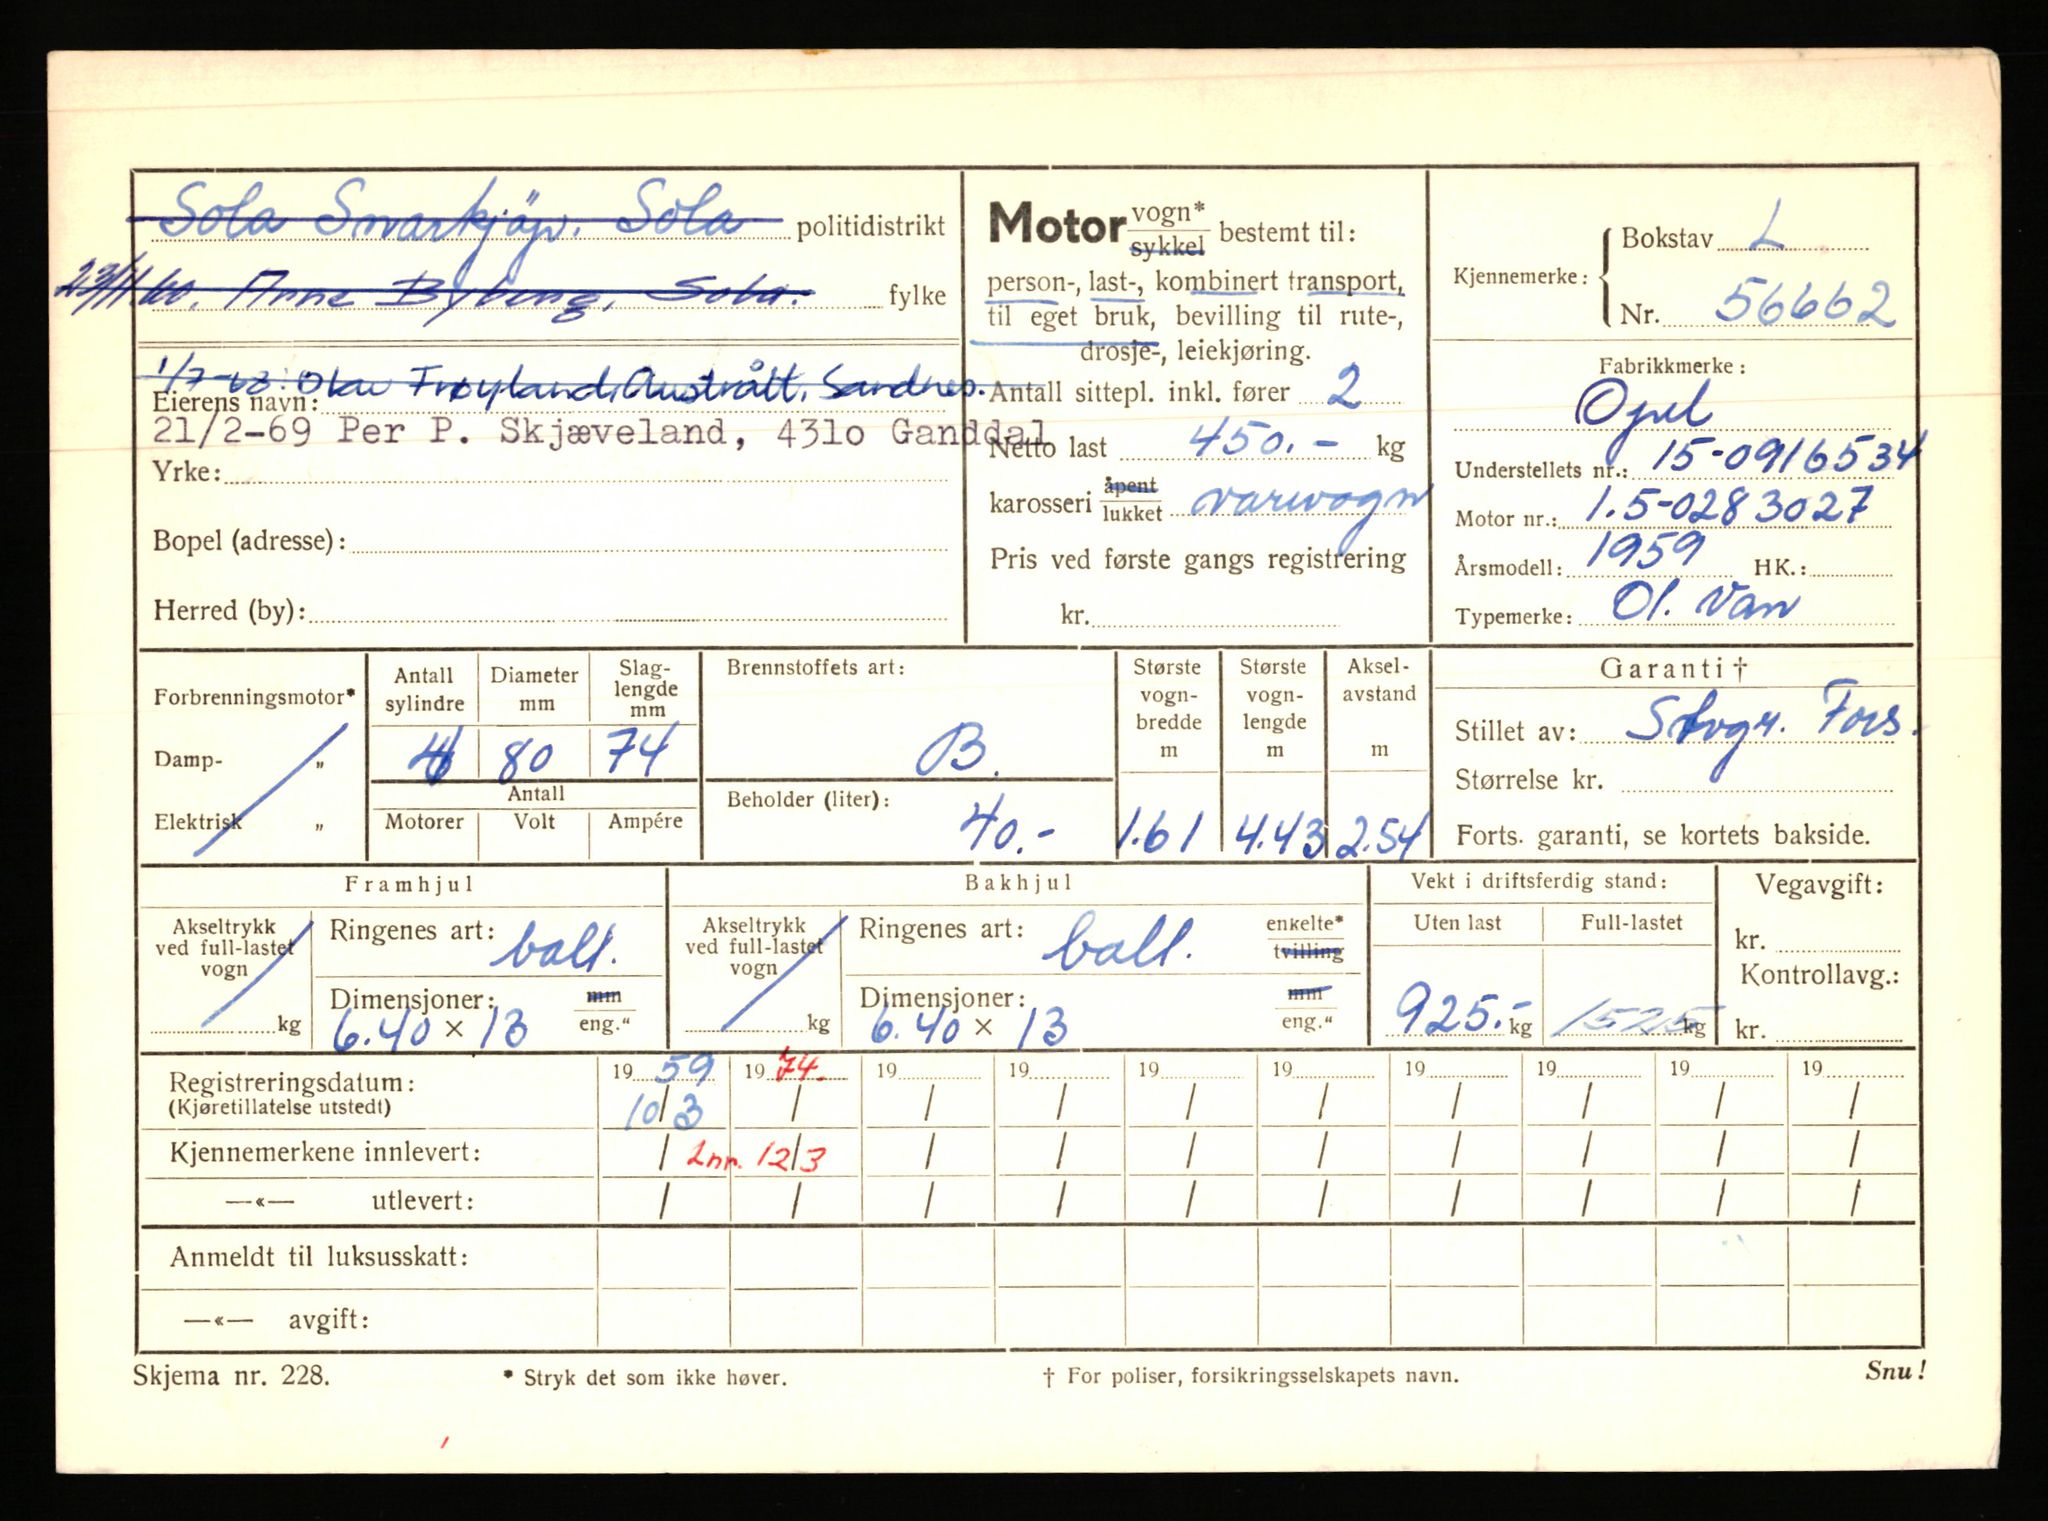 Sola Smarkjöp. Sola politidistrikt
23/11.60. Anne Byberg, Sola. fylke
1/7-63: Olav Frøyland, Austrått, Sandnes.
Eierens navn:
21/2-69 Per P. Skjæveland, 4310 Ganddal
Yrke:
Bopel (adresse):
Herred (by):
Motor vogn* sykkel bestemt til:
person-, last-, kombinert transport,
til eget bruk, bevilling til rute-,
drosje-, leiekjøring.
Antall sittepl. inkl. fører 2
Netto last 450.- kg
karosseri åpent lukket varevogn
Pris ved første gangs registrering
kr.
Kjennemerke: Bokstav L
Nr. 56662
Fabrikkmerke:
Opel
Understellets nr.: 15-0916534
Motor nr.: 1.5-0283027
Årsmodell: 1959 HK.:
Typemerke: Ol. Van
Forbrenningsmotor*
Damp- „
Elektrisk „
Antall sylindre Diameter mm Slag-lengde mm
4 80 74
Antall
Motorer Volt Ampére
Brennstoffets art:
B.
Beholder (liter):
40.-
Største vogn-bredde m Største vogn-lengde m Aksel-avstand m
1.61 4.43 2.54
Garanti †
Stillet av: Stvgr. Fors.
Størrelse kr.
Forts. garanti, se kortets bakside.
Framhjul
Akseltrykk ved full-lastet vogn
kg
Ringenes art: ball.
Dimensjoner: mm
6.40 × 13 eng."
Bakhjul
Akseltrykk ved full-lastet vogn
kg
Ringenes art: ball. enkelte* tvilling
Dimensjoner: mm
6.40 × 13 eng."
Vekt i driftsferdig stand:
Uten last Full-lastet
925.- kg 1525 kg
Vegavgift:
kr.
Kontrollavg.:
kr.
Registreringsdatum: 19 59 19 74. 19 19 19 19 19 19 19 19
(Kjøretillatelse utstedt) 10/3 / / / / / / / / /
Kjennemerkene innlevert: / 2nr. 12/3 / / / / / / / /
—«— utlevert: / / / / / / / / / /
Anmeldt til luksusskatt:
—«— avgift:
Skjema nr. 228. * Stryk det som ikke høver. † For poliser, forsikringsselskapets navn. Snu!